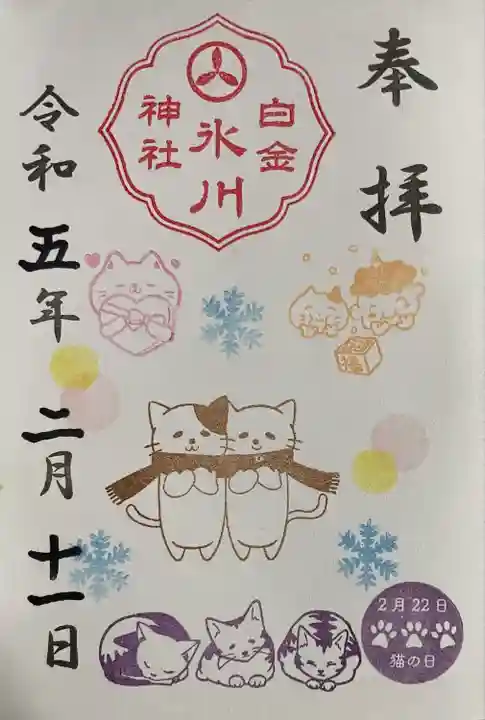 奉拝
白金
氷川
神社
令和五年二月十一日
2月22日
猫の日